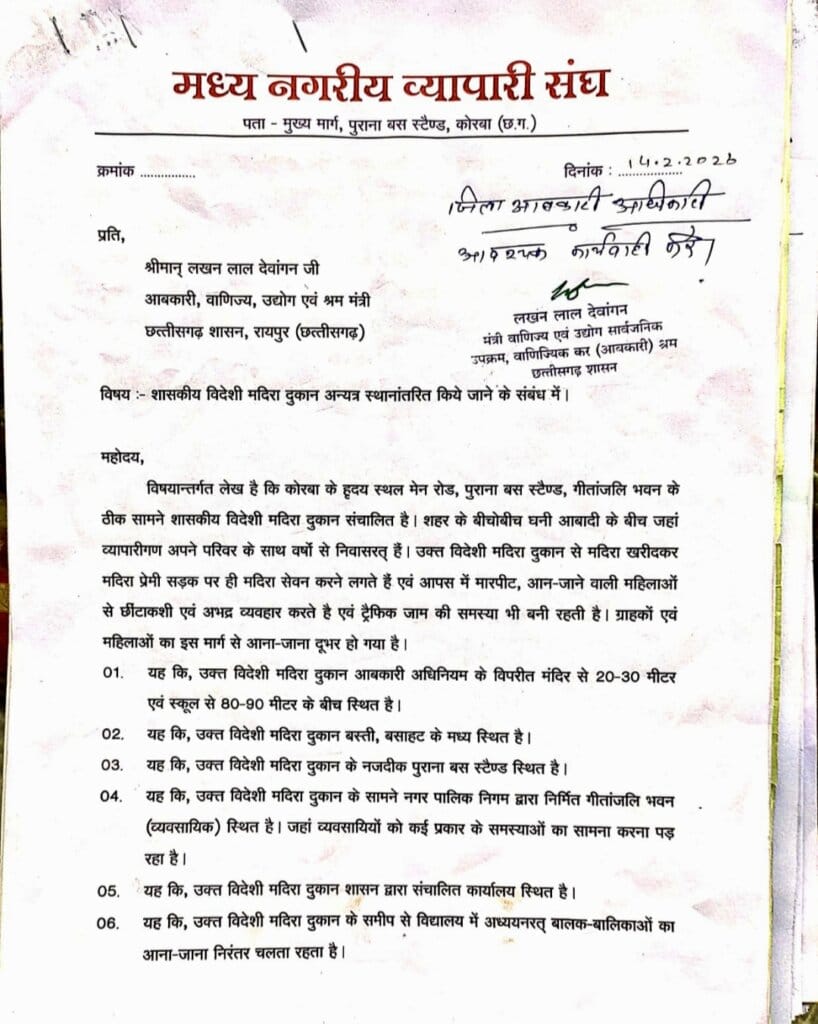 मध्य नगरीय व्यापारी संघ
पता - मुख्य मार्ग, पुराना बस स्टैण्ड, कोरबा (छ.ग.)
क्रमांक ................
दिनांक : 14.2.2026
जिला आबकारी अधिकारी
आवश्यक कार्यवाही करें।
प्रति,
श्रीमान् लखन लाल देवांगन जी
आबकारी, वाणिज्य, उद्योग एवं श्रम मंत्री
छत्तीसगढ़ शासन, रायपुर (छत्तीसगढ़)
लखन लाल देवांगन
मंत्री वाणिज्य एवं उद्योग सार्वजनिक
उपक्रम, वाणिज्यिक कर (आबकारी) श्रम
छत्तीसगढ़ शासन
विषय :- शासकीय विदेशी मदिरा दुकान अन्यत्र स्थानांतरित किये जाने के संबंध में।
महोदय,
विषयान्तर्गत लेख है कि कोरबा के हृदय स्थल मेन रोड, पुराना बस स्टैण्ड, गीतांजलि भवन के
ठीक सामने शासकीय विदेशी मदिरा दुकान संचालित है। शहर के बीचोबीच घनी आबादी के बीच जहां
व्यापारीगण अपने परिवर के साथ वर्षो से निवासरत् हैं। उक्त विदेशी मदिरा दुकान से मदिरा खरीदकर
मदिरा प्रेमी सड़क पर ही मदिरा सेवन करने लगते हैं एवं आपस में मारपीट, आन-जाने वाली महिलाओं
से छींटाकशी एवं अभद्र व्यवहार करते है एवं ट्रैफिक जाम की समस्या भी बनी रहती है। ग्राहकों एवं
महिलाओं का इस मार्ग से आना-जाना दूभर हो गया है।
01. यह कि, उक्त विदेशी मदिरा दुकान आबकारी अधिनियम के विपरीत मंदिर से 20-30 मीटर
एवं स्कूल से 80-90 मीटर के बीच स्थित है।
02. यह कि, उक्त विदेशी मदिरा दुकान बस्ती, बसाहट के मध्य स्थित है।
03. यह कि, उक्त विदेशी मदिरा दुकान के नजदीक पुराना बस स्टैण्ड स्थित है।
04. यह कि, उक्त विदेशी मदिरा दुकान के सामने नगर पालिक निगम द्वारा निर्मित गीतांजलि भवन
(व्यवसायिक) स्थित है। जहां व्यवसायियों को कई प्रकार के समस्याओं का सामना करना पड़
रहा है।
05. यह कि, उक्त विदेशी मदिरा दुकान शासन द्वारा संचालित कार्यालय स्थित है।
06. यह कि, उक्त विदेशी मदिरा दुकान के समीप से विद्यालय में अध्ययनरत् बालक-बालिकाओं का
आना-जाना निरंतर चलता रहता है।